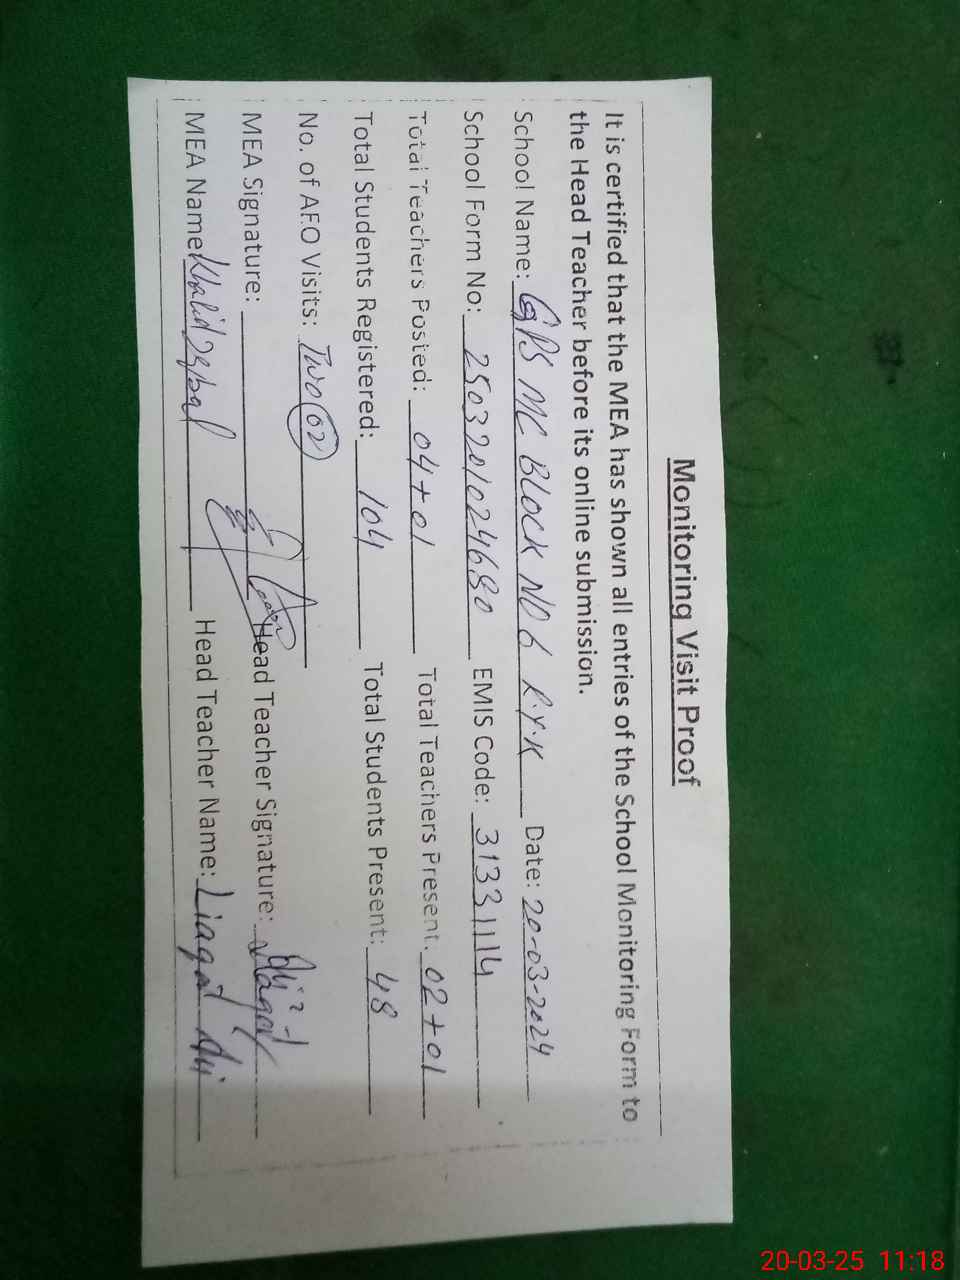 Monitoring Visit Proof
It is certified that the MEA has shown all entries of the School Monitoring Form to
the Head Teacher before its online submission.
School Name: GPS MC BLOCK NO 6 R.Y.K Date: 20-03-2024
School Form No: 2503201024680 EMIS Code: 31331114
Total Teachers Posted: 04+01 Total Teachers Present: 02+01
Total Students Registered: 104 Total Students Present: 48
No. of AEO Visits: Two 02
MEA Signature: Head Teacher Signature:
MEA Name: Khalid Iqbal Head Teacher Name: Liaqat Ali
20-03-25 11:18